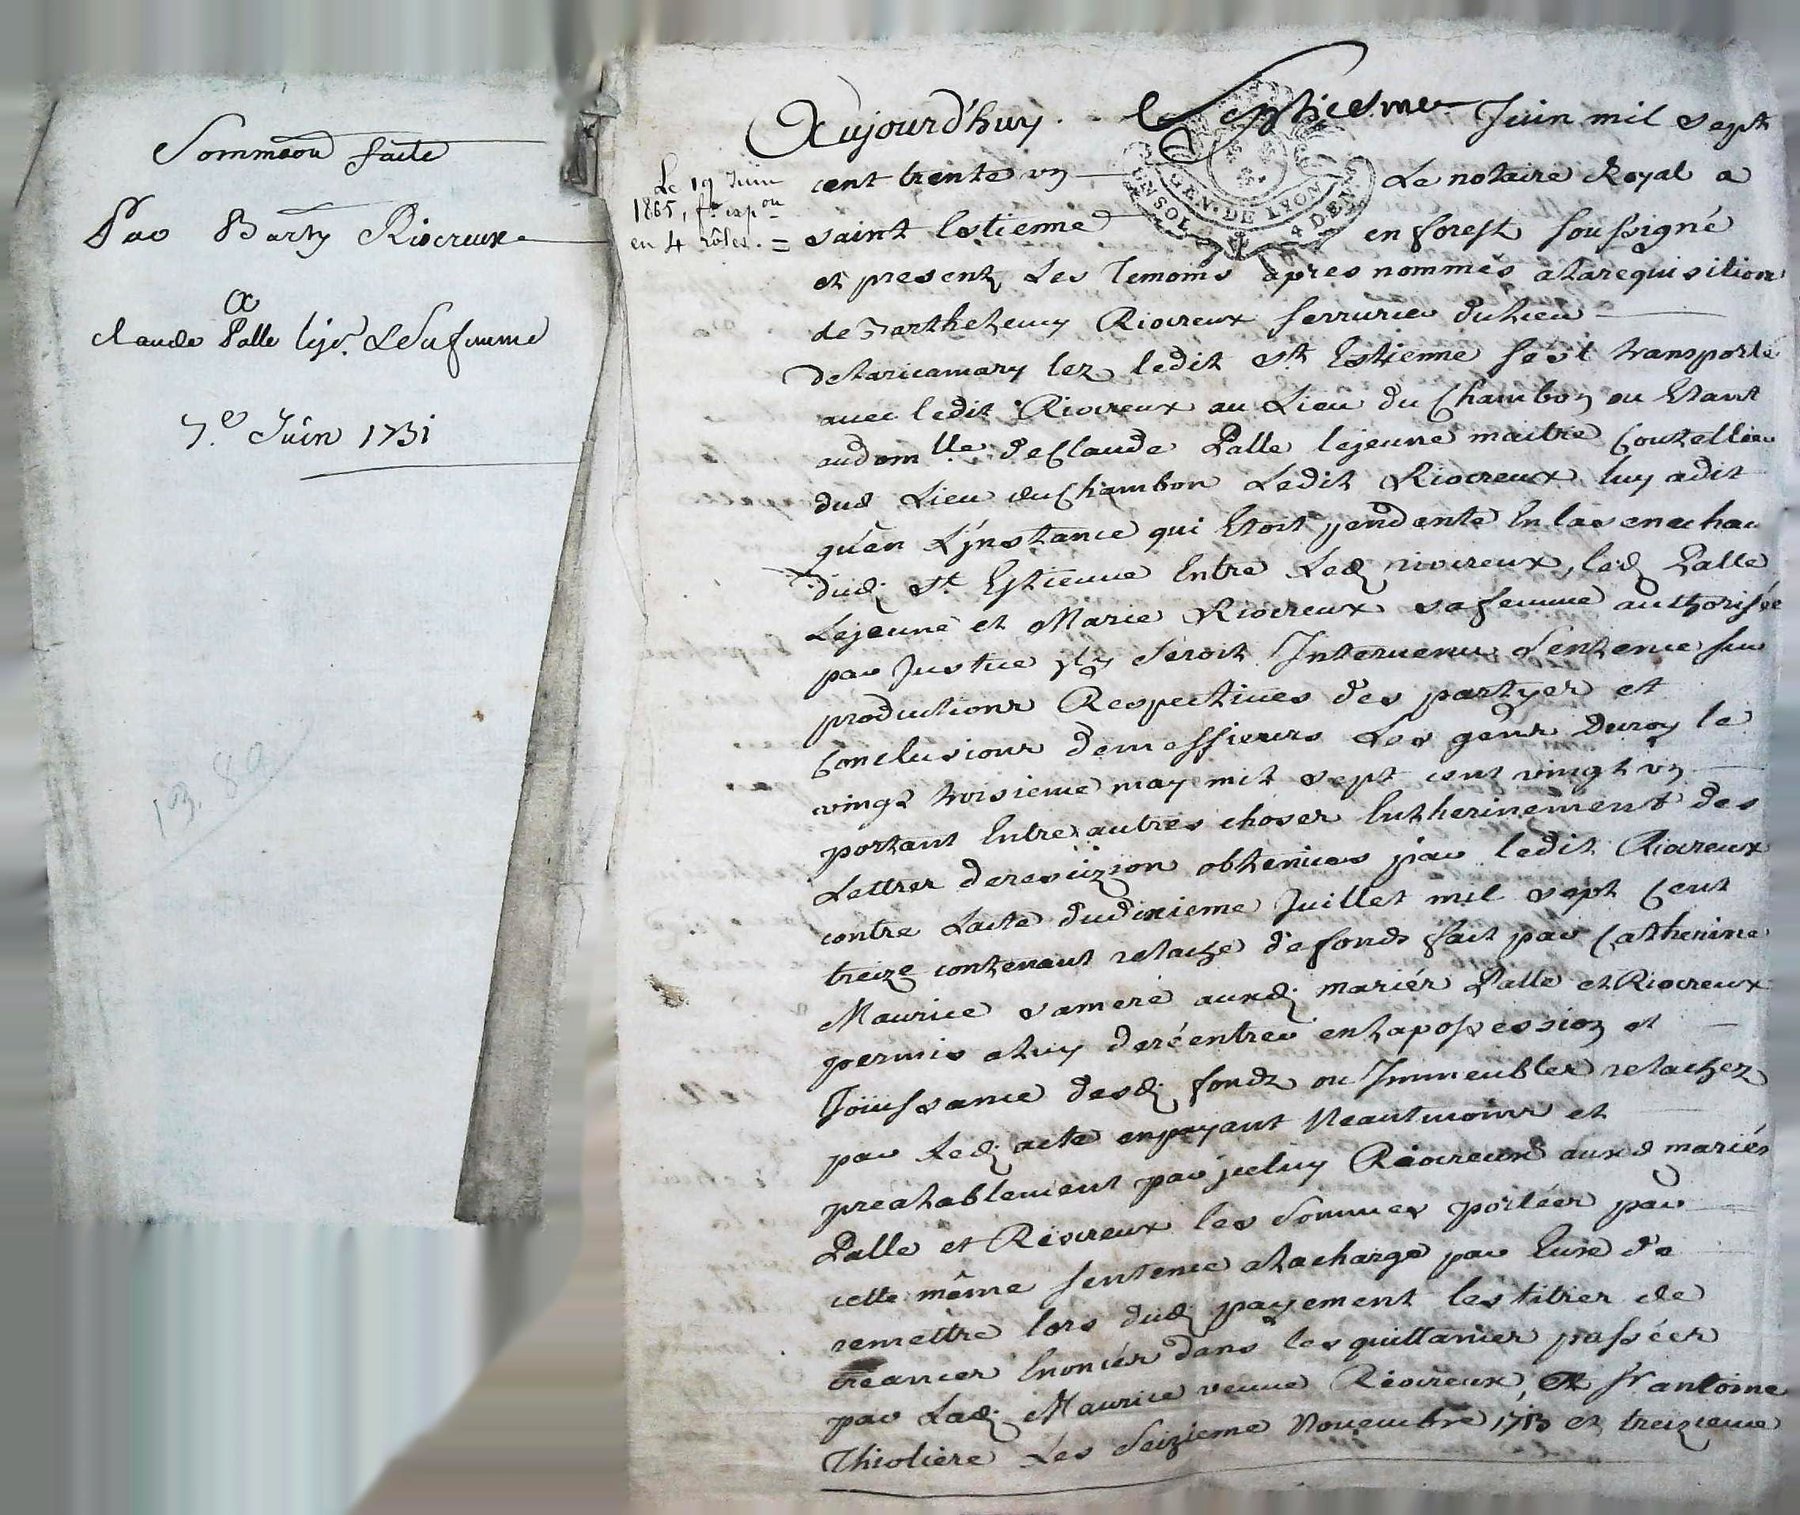 Sommaon faite
Par Barty Riocreux
a
claude Palle lejr. & Sa femme
7.e Juin 1731
Le 19 Juin
1865, f.t exp.on
en 4 rôles. =
GEN. DE LYON
UN SOL 4 DEN.
Aujourd'huy le Septiesme Juin mil sept
cent trente un Le notaire Royal a
saint Estienne en forest soussigné
et presents Les Temoins apres nommés a la requisition
de Barthelemy Riocreux serrurier du lieu
de la ricamary lez ledit st. Estienne sest transporté
avec ledit Riocreux au Lieu du Chambon ou Etant
au domlle de Claude Palle lejeune maitre Coutellier
dud Lieu du Chambon Ledit Riocreux luy a dit
qu'en L'jnstance qui Etoit pendante En la senechau
dud. st. Estienne Entre Led. riocreux, led. Palle
Lejeune et Marie Riocreux sa femme authorisée
par Justice jl y seroit Intervenu sentence sur
productions Respectives des partyes et
Conclusions de messieurs Les gens du roy le
vingt troisieme may mil sept cent vingt un
portant Entre autres choses Entherinement des
Lettres de resizion obtenües par ledit Riocreux
contre Lacte du dixieme Juillet mil sept Cent
treize contenant relache de fonds fait par Catherine
Maurice sa mere auxd. mariés Palle et Riocreux
permis a luy de réentrer en la possession et
Joüissance desd. fonds ou Immeubles relachez
par Led. acte en payant Neantmoins et
prealablement par jceluy Riocreux auxd mariés
Palle et Riocreux les sommes portées par
cette même sentence a la charge par Eux de
remettre lors dud. payement les titres de
creances Enoncés dans les quittances passées
par Lad. Maurice veuve Riocreux, et sr antoine
Thioliere Les seizieme Novembre 1713 et treizieme